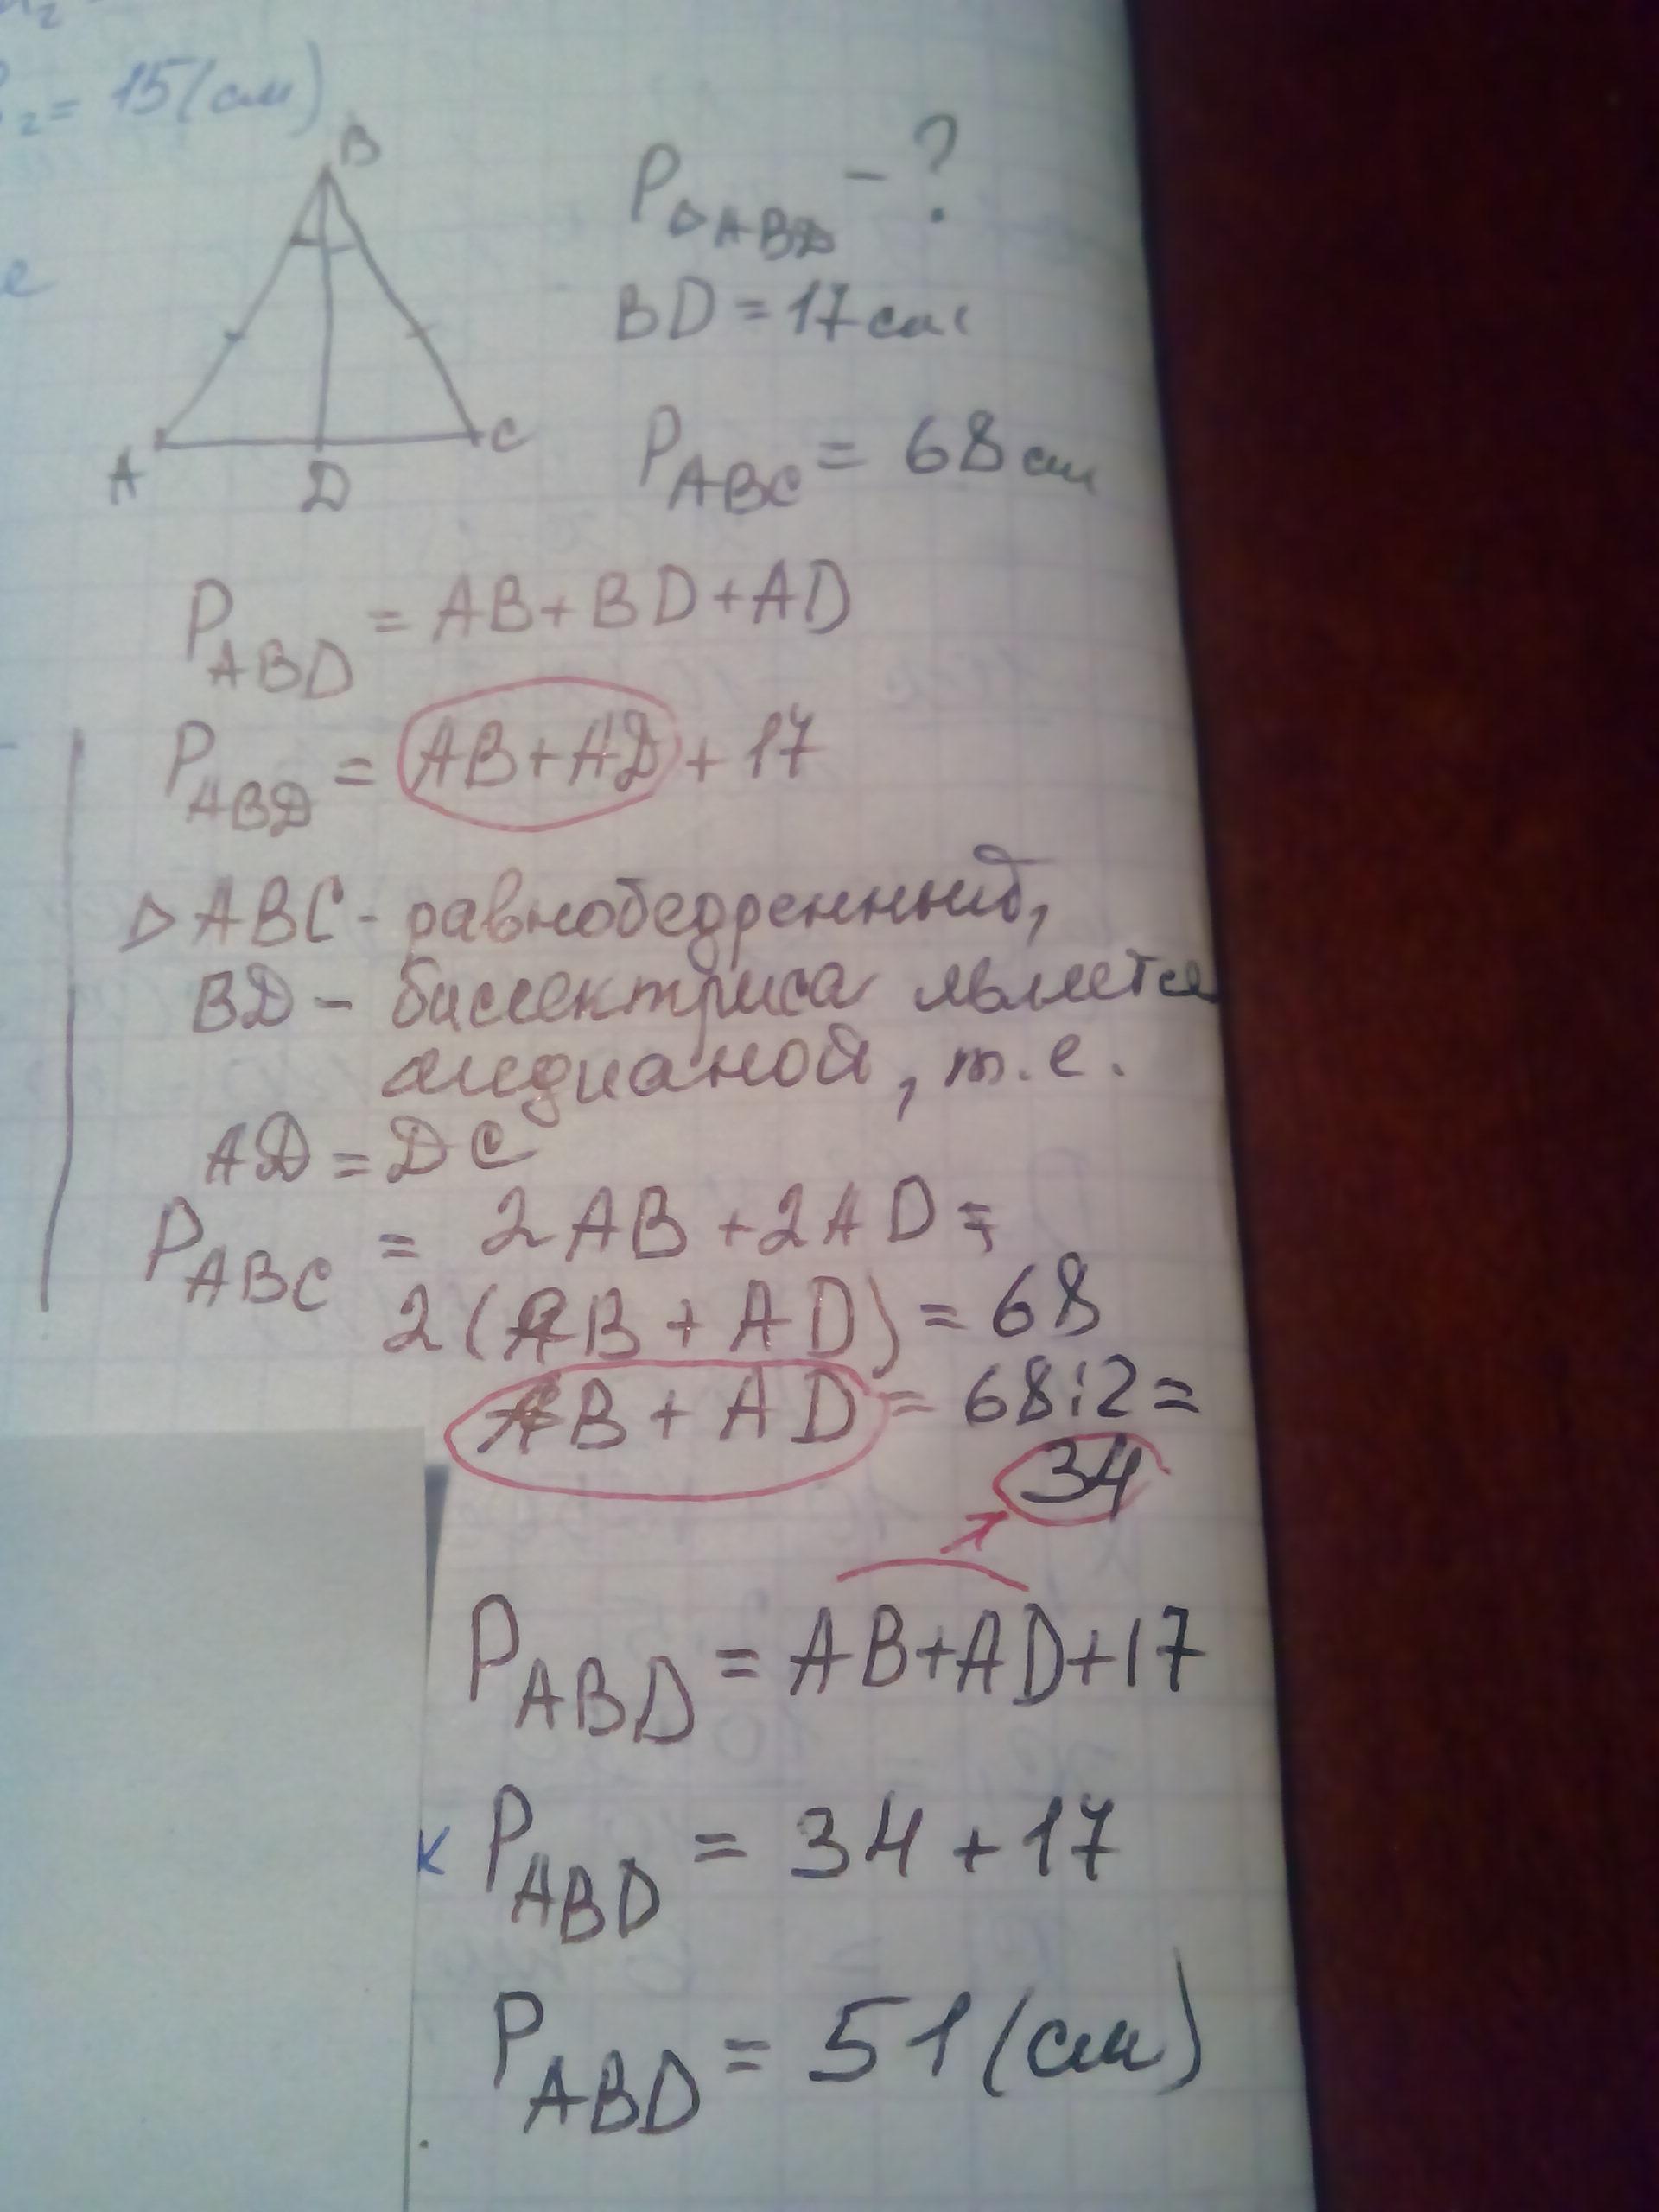 ₂ = 15 (см)
е
B
A
D
C
P△ABD - ?
BD = 17 см
PABC = 68 см
PABD = AB + BD + AD
PABD = AB + AD + 17
△ ABC - равнобедренный,
BD - биссектриса является
медианой, т.е.
AD = DC
PABC = 2AB + 2AD =
2(AB + AD) = 68
AB + AD = 68:2 =
34
PABD = AB + AD + 17
к
PABD = 34 + 17
PABD = 51 (см)